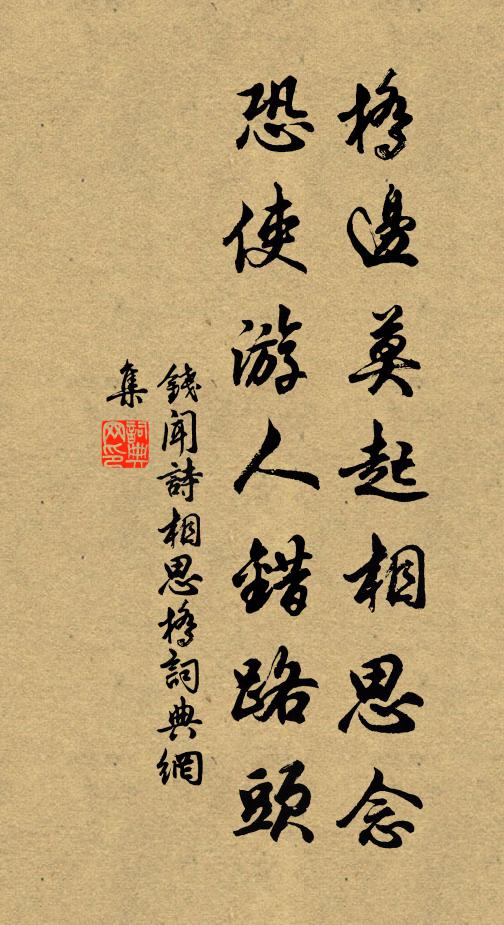 橋邊莫起相思念
恐使游人錯路頭
錢聞詩相思橋詞典網
集
詞典網印